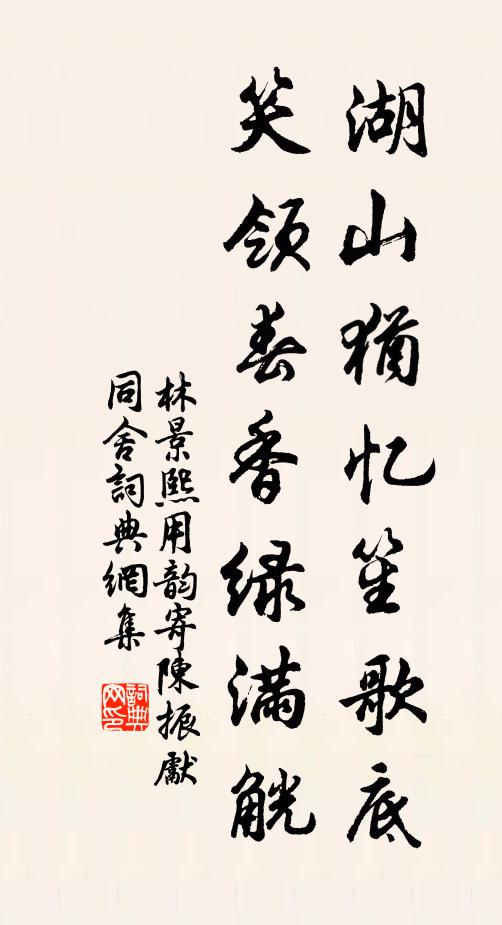 湖山猶忆笙歌底
笑领春香绿满觥
林景熙用韵寄陳振獻
同舍詞典網集
詞典网印